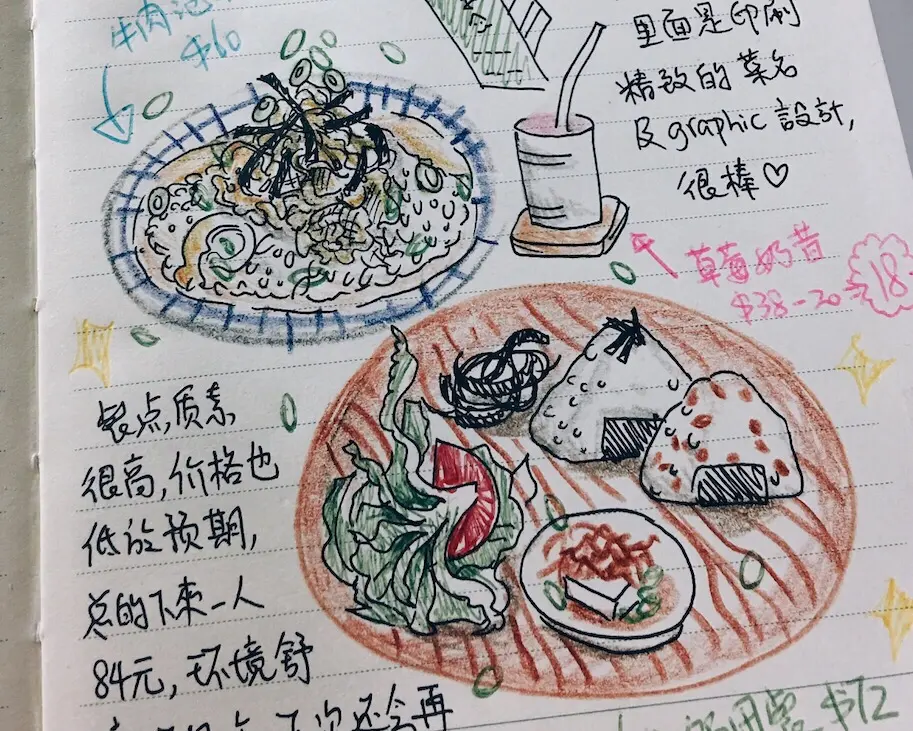 牛肉泡
$60
里面是印刷
精致的菜名
及graphic設計,
很棒♡
草莓奶昔
$38-20
18
餐点,质素
很高,价格也
低於预期,
总的下來一人
84元,环境舒
下次还会再
$72